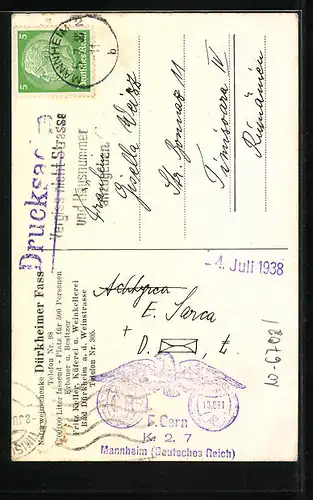 5
Deutsches Reich
MANNHEIM 2
11
b
Drucksache
Vergiss nicht Strasse
und Hausnummer
anzugeben.
Fräulein
Gisella Weisz
Str. Bonnaz 11
Timisoara IV
Rumänien
-4. Juli 1938
E. Sarca
+
D. E
W-67021
E. Cern
K 2. 7
Mannheim (Deutsches Reich)
Naturweinschenke Dürkheimer Fass
Telefon Nr. 98
Liter fassend - Platz für 500 Personen
Erbauer u. Besitzer
Fritz Keller, Küferei u. Weinkellerei
Bad Dürkheim a. d. Weinstrasse
Telefon Nr. 305.